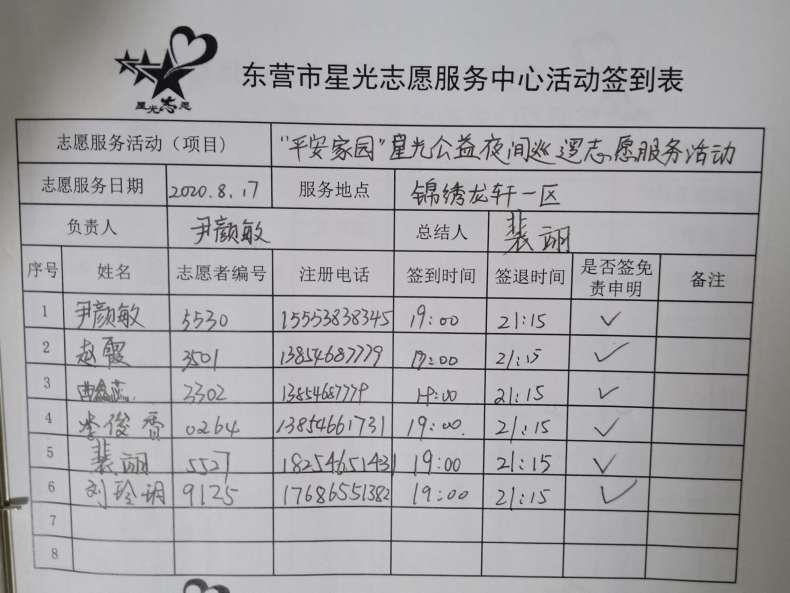 星光志愿
东营市星光志愿服务中心活动签到表
志愿服务活动（项目） “平安家园”星光公益夜间巡逻志愿服务活动
志愿服务日期 2020.8.17 服务地点 锦绣龙轩一区
负责人 尹颜敏 总结人 裴翊
序号 姓名 志愿者编号 注册电话 签到时间 签退时间 是否签免责申明 备注
1 尹颜敏 5530 15553838345 19:00 21:15 ✓
2 赵霞 3501 13854687779 19:00 21:15 ✓
3 3302 13854687779 19:00 21:15 ✓
4 李俊香 0264 13854661731 19:00. 21:15 ✓
5 裴翊 5527 18254651431 19:00 21:15 ✓
6 刘玲玥 9125 17686551382 19:00 21:15 ✓
7
8